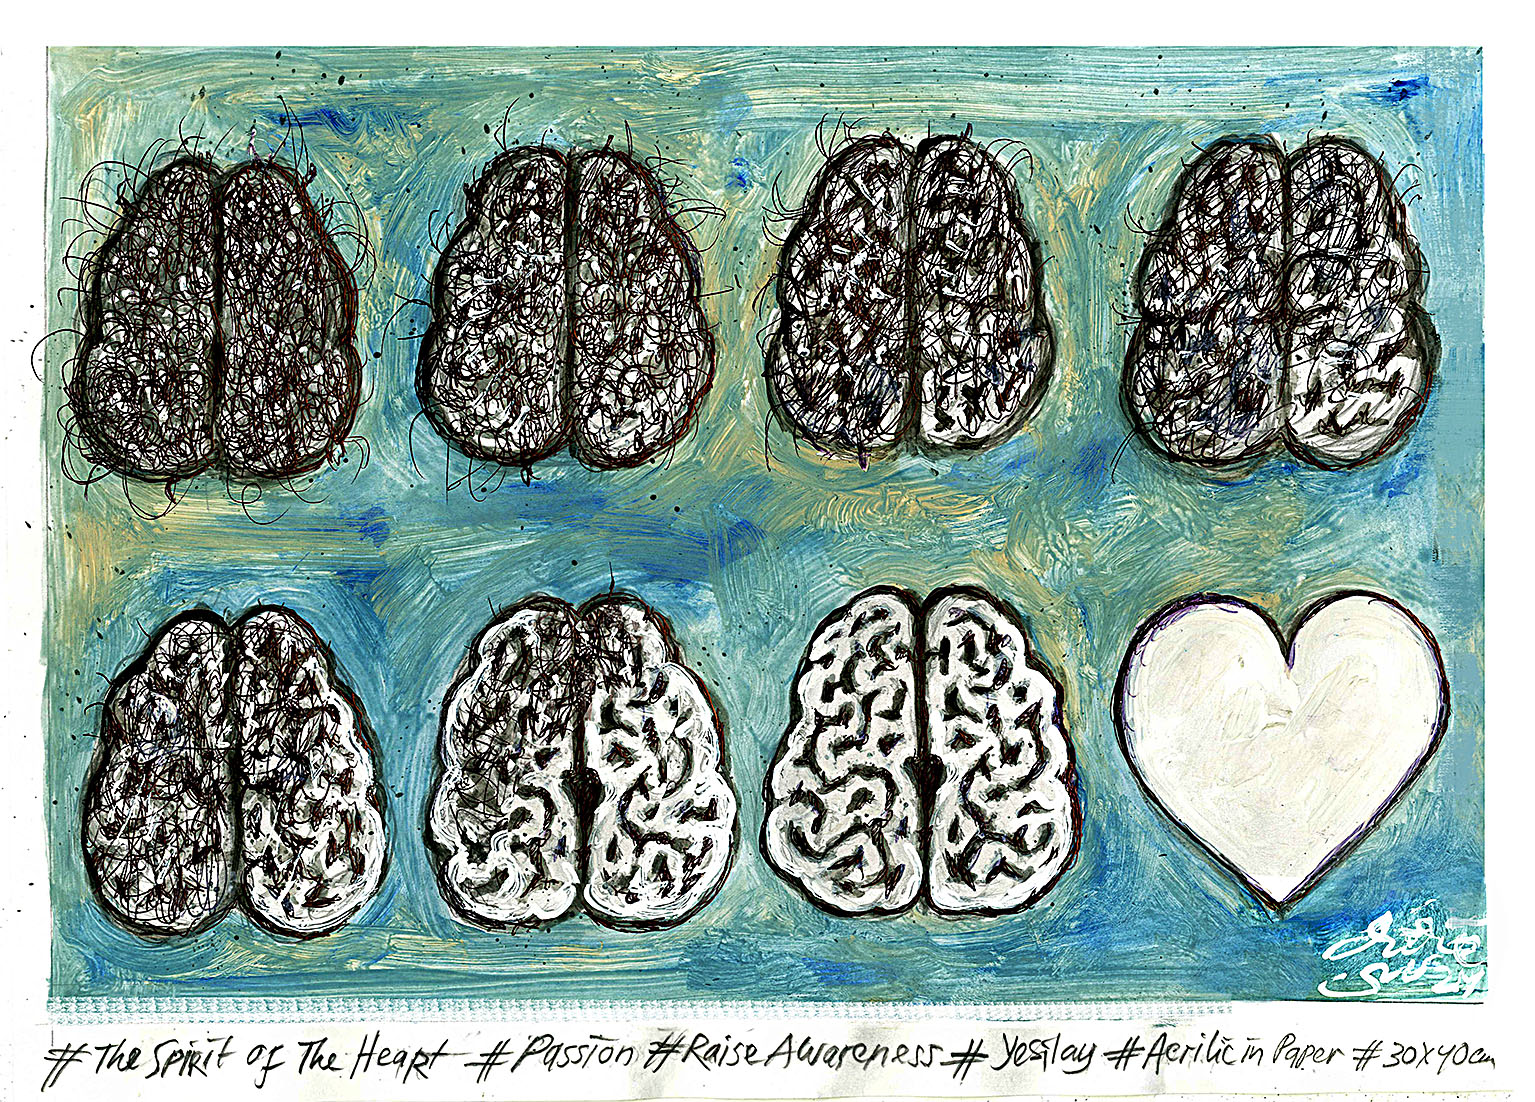 #The Spirit of The Heart # Passion #Raise Awareness # Yesilay #Acrilic in Paper # 30x40cm